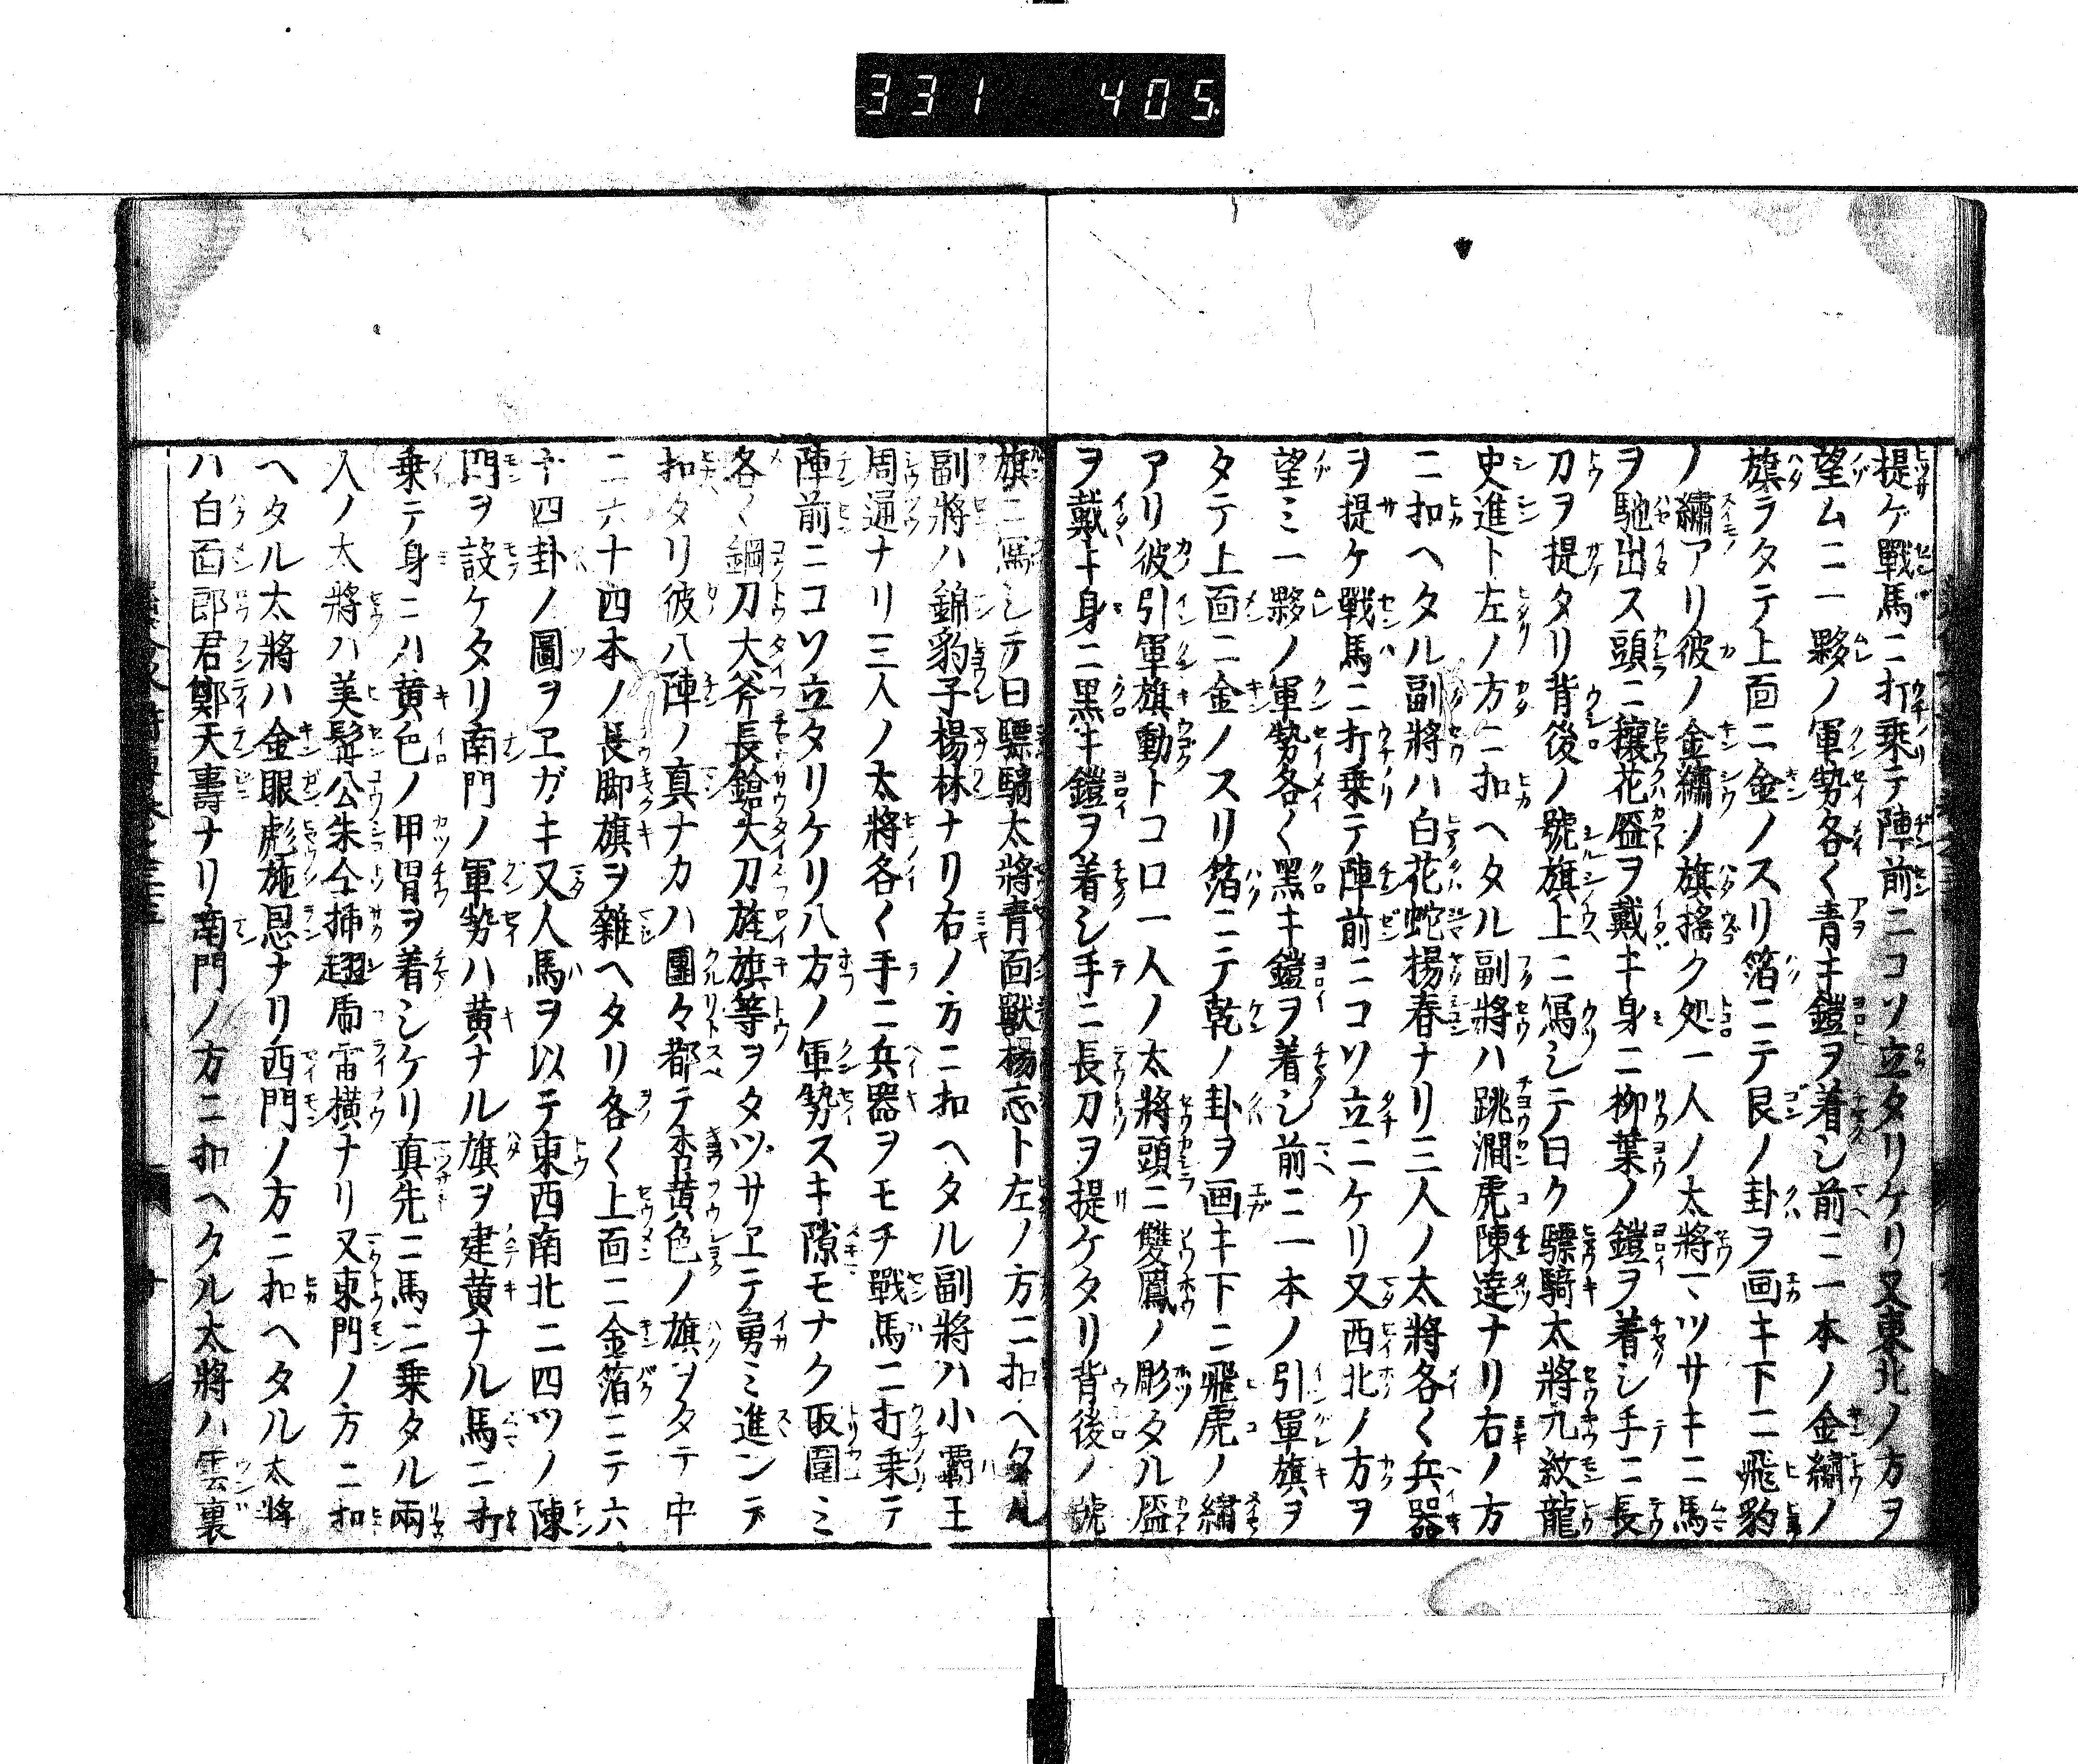 331 405
提ケ戰馬ニ打乗テ陣前ニコソ立タリケリ又東北ノ方ヲ
望ムニ一夥ノ軍勢各く青キ鎧ヲ着シ前ニ一本ノ金繡ノ
旗ヲタテ上面ニ金ノスリ箔ニテ艮ノ卦ヲ画キ下ニ飛豹
ノ繡アリ彼ノ金繡ノ旗搖ク処一人ノ太將マツサキニ馬
ヲ馳出ス頭ニ穰花盔ヲ戴キ身ニ柳葉ノ鎧ヲ着シ手ニ長
刀ヲ提タリ背後ノ號旗上ニ寫シテ曰ク驃騎太將九紋龍
史進ト左ノ方ニ扣ヘタル副將ハ跳澗虎陳達ナリ右ノ方
ニ扣ヘタル副將ハ白花蛇楊春ナリ三人ノ太將各く兵器
ヲ提ケ戰馬ニ打乗テ陣前ニコソ立ニケリ又西北ノ方ヲ
望ミ一夥ノ軍勢各く黑キ鎧ヲ着シ前ニ一本ノ引軍旗ヲ
タテ上面ニ金ノスリ箔ニテ乾ノ卦ヲ画キ下ニ飛虎ノ繡
アリ彼引軍旗動トコロ一人ノ太將頭ニ雙鳳ノ彫タル盔
ヲ戴キ身ニ黒キ鎧ヲ着シ手ニ長刀ヲ提ケタリ背後ノ號
旗ニ寫シテ曰驃騎太將青面獸楊志ト左ノ方ニ扣ヘタル
副將ハ錦豹子楊林ナリ右ノ方ニ扣ヘタル副將ハ小霸王
周通ナリ三人ノ太將各く手ニ兵器ヲモチ戰馬ニ打乗テ
陣前ニコソ立タリケリ八方ノ軍勢スキ隙モナク取圍ミ
各く鋼刀大斧長鎗大刀旌旗等ヲタヅサヱテ勇ミ進ンテ
扣タリ彼八陣ノ真ナカハ團々都テ杏黄色ノ旗ヲタテ中
ニ六十四本ノ長脚旗ヲ雜ヘタリ各く上面ニ金箔ニテ六
十四卦ノ圖ヲヱガキ又人馬ヲ以テ東西南北ニ四ツノ陳
門ヲ設ケタリ南門ノ軍勢ハ黄ナル旗ヲ建黄ナル馬ニ打
乗テ身ニハ黄色ノ甲冑ヲ着シケリ真先ニ馬ニ乗タル兩
人ノ太將ハ美髯公朱仝挿翅乕雷橫ナリ又東門ノ方ニ扣
ヘタル太將ハ金眼彪施恩ナリ西門ノ方ニ扣ヘタル太將
ハ白面郎君鄭天壽ナリ南門ノ方ニ扣ヘタル太將ハ雲裏